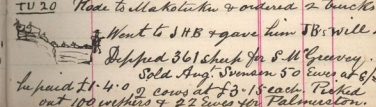 TU 20 Rode to Makotuku & ordered 2 bucks
Went to JHB & gave him JB's will.
Dipped 361 sheep for S McGreevy.
Sold Augt Svensen 50 Ewes at 6/
he paid £1.4.0 2 cows at £3.15 each. Picked
out 100 wethers & 22 Ewes for Palmerston.